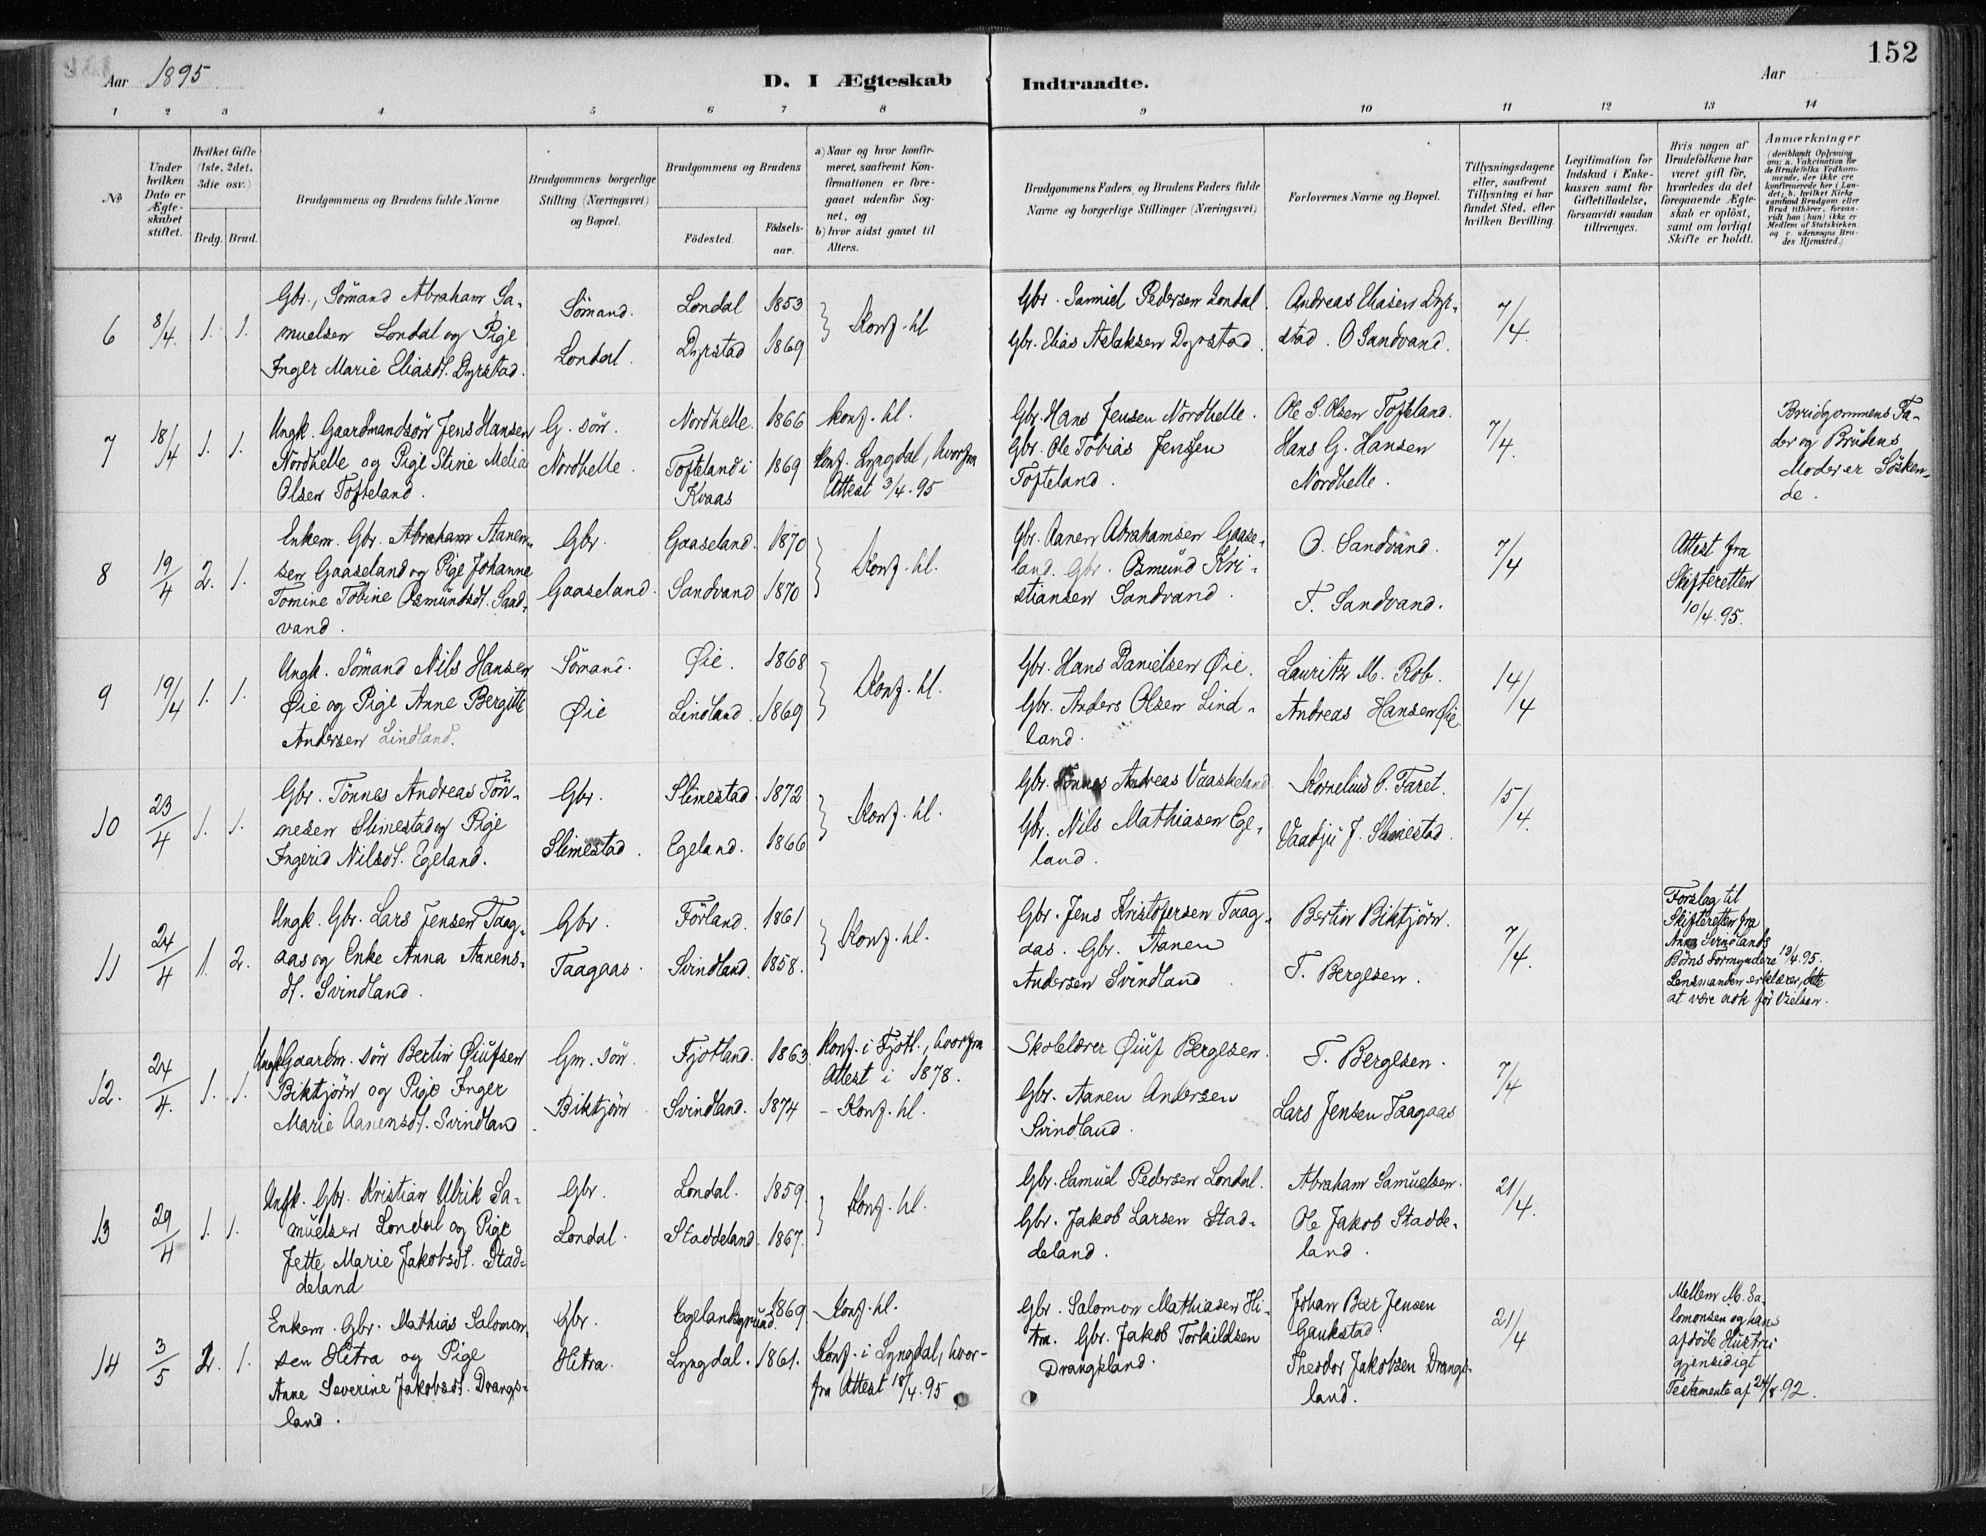 152
Aar 1895
D. I Ægteskab Indtraadte.
Aar
1 2 3 4 5 6 7 8 9 10 11 12 13 14
№
Under hvilken Dato er Ægteskabet stiftet.
Hvilket Gifte (1ste, 2det, 3die osv.)
Brdg. Brud.
Brudgommens og Brudens fulde Navne
Brudgommens borgerlige Stilling (Næringsvei) og Bopæl.
Brudgommens og Brudens
Fødested.
Fødsels-aar.
a) Naar og hvor konfirmeret, saafremt Konfirmationen er foregaaet udenfor Sognet, og
b) hvor sidst gaaet til Alters.
Brudgommens Faders og Brudens Faders fulde Navne og borgerlige Stillinger (Næringsvei)
Forlovernes Navne og Bopæl.
Tillysningsdagene eller, saafremt Tillysning ei har fundet Sted, efter hvilken Bevilling.
Legitimation for Indskud i Enkekassen samt for Giftetilladelse, forsaavidt saadan tiltrænges.
Hvis nogen af Brudefolkene har været gift før, hvorledes da det foregaaende Ægteskab er opløst, samt om lovligt Skifte er holdt.
Anmærkninger
(deriblandt Oplysning om: a. Vakcination for de Brudefolks Vedkommende, der ikke ere konfirmerede her i Landet; b. hvilket Kirkesamfund Brudgom eller Brud tilhører, forsaavidt han (hun) ikke er Medlem af Statskirken, og c. udensogns Brudes Hjemsted.)
6 8/4 1. 1.
Gbr., Sömand Abraham Sa-
muelsen Londal og Pige
Inger Marie Eliasdt. Dyrstad.
Sömand.
Londal.
Londal 1853
Dyrstad 1869
Konf. hl
Gbr. Samuel Pedersen Londal.
Gbr. Elias Aslaksen Dyrstad.
Andreas Eliasen Dyr-
stad. O Sandvand.
7/4.
7 18/4 1. 1.
Ungk. Gaardmandsön Jens Hansen
Nordhelle og Pige Stine Melia
Olsen Tofteland.
G. sön.
Nordhelle.
Nordhelle. 1866
Tofteland i 1869
Kvaas
Konf. hl.
Konf. Lyngdal, hvorfra
Attest 3/4. 95
Gbr. Hans Jensen Nordhelle.
Gbr. Ole Tobias Jensen
Tofteland.
Ole S. Olsen Tofteland.
Hans G. Hansen
Nordhelle.
7/4.
Brudgommens Fa-
der og Brudens
Moder er Sösken-
de.
8 19/4 2. 1.
Enkem. Gbr. Abraham Aanen-
sen Gaaseland og Pige Johanne
Tomine Tobine Osmundsdt. Sand-
vand.
Gbr.
Gaaseland.
Gaaseland. 1870
Sandvand 1870
Konf. hl.
Gbr. Aanen Abrahamsen Gaase-
land. Gbr. Osmund Kri-
stiansen Sandvand.
O. Sandvand.
T. Sandvand.
7/4
Attest fra
Skifteretten
10/4. 95.
9 19/4 1. 1.
Ungk. Sömand Nils Hansen
Øie og Pige Anne Bergitte
Andersen Lindland.
Sömand.
Øie
Øie. 1868
Lindland. 1869
Konf. hl.
Gbr. Hans Danielsen Øie.
Gbr. Anders Olsen Lind-
land.
Lauritz M. Rob.
Andreas Hansen Øie
14/4
10 23/4 1. 1.
Gbr. Tönnes Andreas Tön-
nesen Slimestad og Pige
Ingerid Nilsdt. Egeland.
Gbr.
Slimestad.
Slimestad. 1872
Egeland. 1866
Konf. hl.
Gbr. Tönnes Andreas Vaaskeland
Gbr. Nils Mathiasen Ege-
land.
Kornelius O. Faret.
J. Slimestad.
15/4.
11 24/4 1. 2.
Ungk. Gbr. Lars Jensen Taag-
aas og Enke Anna Aanens-
dt. Svindland.
Gbr.
Taagaas.
Förland. 1861
Svindland. 1858.
Konf. hl.
Gbr. Jens Kristofersen Taag-
aas. Gbr. Aanen
Andersen Svindland
Bertin Biktjörn.
T. Bergesen.
7/4.
Forslag til
Skifteretten fra
Anna Svindlands
Börns Formyndere 13/4. 95.
Lensmanden erklærer, dette
at være nok för Vielsen.
12. 24/4. 1. 1.
Ungk. Gaardm. sön Bertin Øiufsen
Biktjörn og Pige Inger
Marie Aanensdt. Svindland.
Gm. sön.
Biktjörn.
Fjotland. 1863.
Svindland. 1874
Konf. i Fjotl., hvorfra
Attest i 1878.
- Konf. hl.
Skolelærer Øiuf Bergesen.
Gbr. Aanen Andersen
Svindland.
T. Bergesen.
Lars Jensen Taagaas
7/4
13 29/4 1. 1.
Ungk. Gbr. Kristian Ulrik Sa-
muelsen Londal og Pige
Jette Marie Jakobsdt. Stad-
deland
Gbr.
Londal.
Londal. 1859.
Staddeland. 1867.
Konf. hl.
Gbr. Samuel Pedersen Londal.
Gbr. Jakob Larsen Stad-
deland.
Abraham Samuelsen.
Ole Jakob Stadde-
land.
21/4.
14 3/5 2. 1.
Enkem. Gbr. Mathias Salomon-
sen Hitra og Pige
Anne Severine Jakobsdt. Drangs-
land.
Gbr.
Hitra.
Egelandsgrund 1869
Lyngdal. 1861.
Konf. hl.
Konf. i Lyngdal, hvor-
fra Attest 18/4. 95
Gbr. Salomon Mathiasen Hi-
tra. Gbr. Jakob Torkildsen
Drangsland.
Johan Jensen
Gaukstad.
Theodor Jakobsen Drangs-
land.
21/4
Mellem M. Sa-
lomonsen og hans
afdöde Hustru
gjensidigt
Testamente af 24/8. 92.